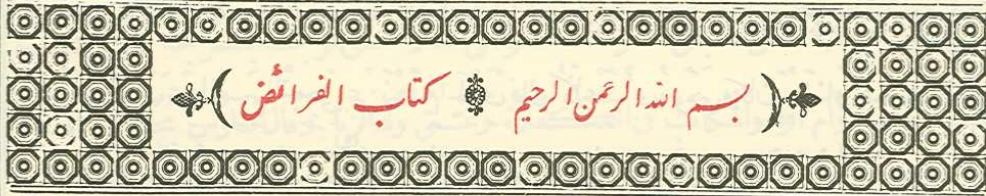 بسم الله الرحمن الرحيم كتاب الفرائض